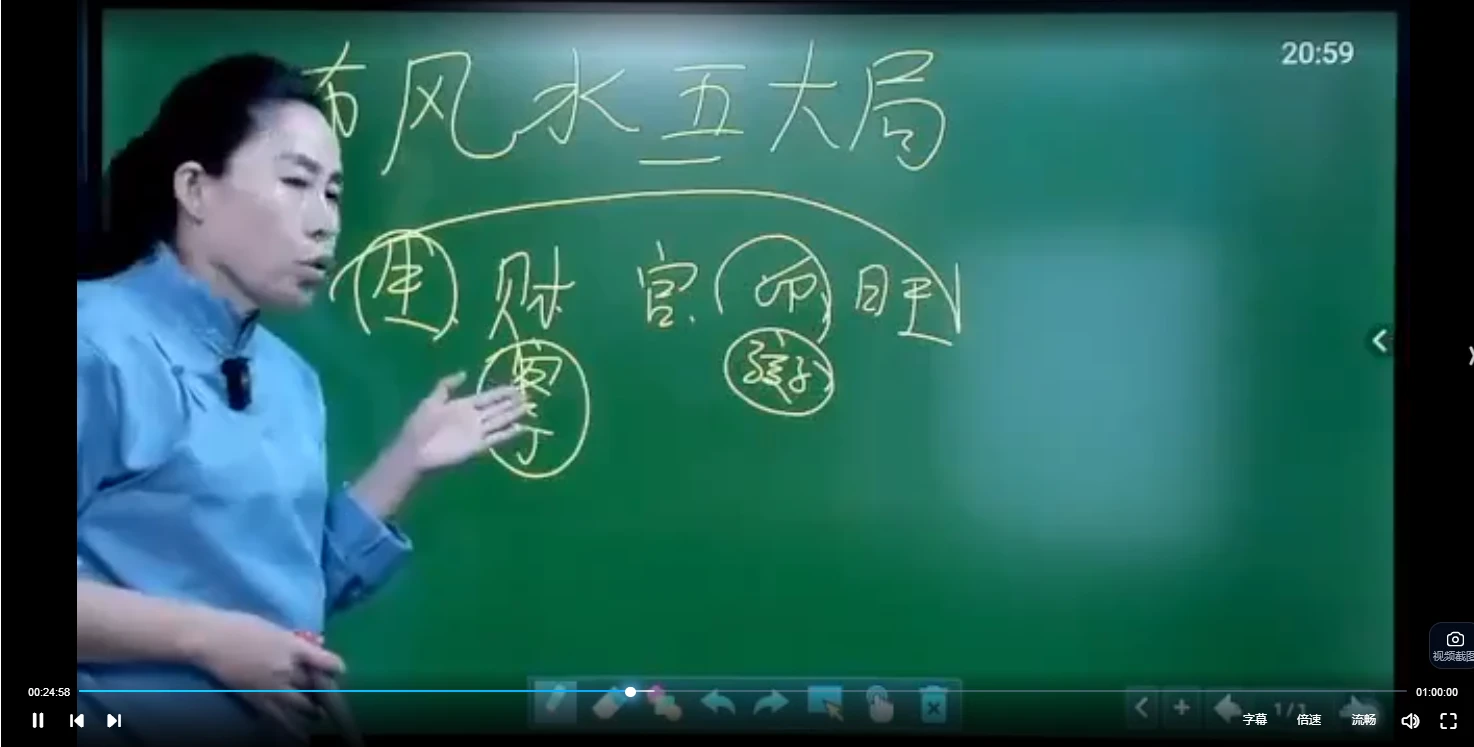 20:59
布风水五大局
健 财 官 印 日旺
孩子
视频截图
00:24:58
01:00:00
1/1
字幕 倍速 流畅